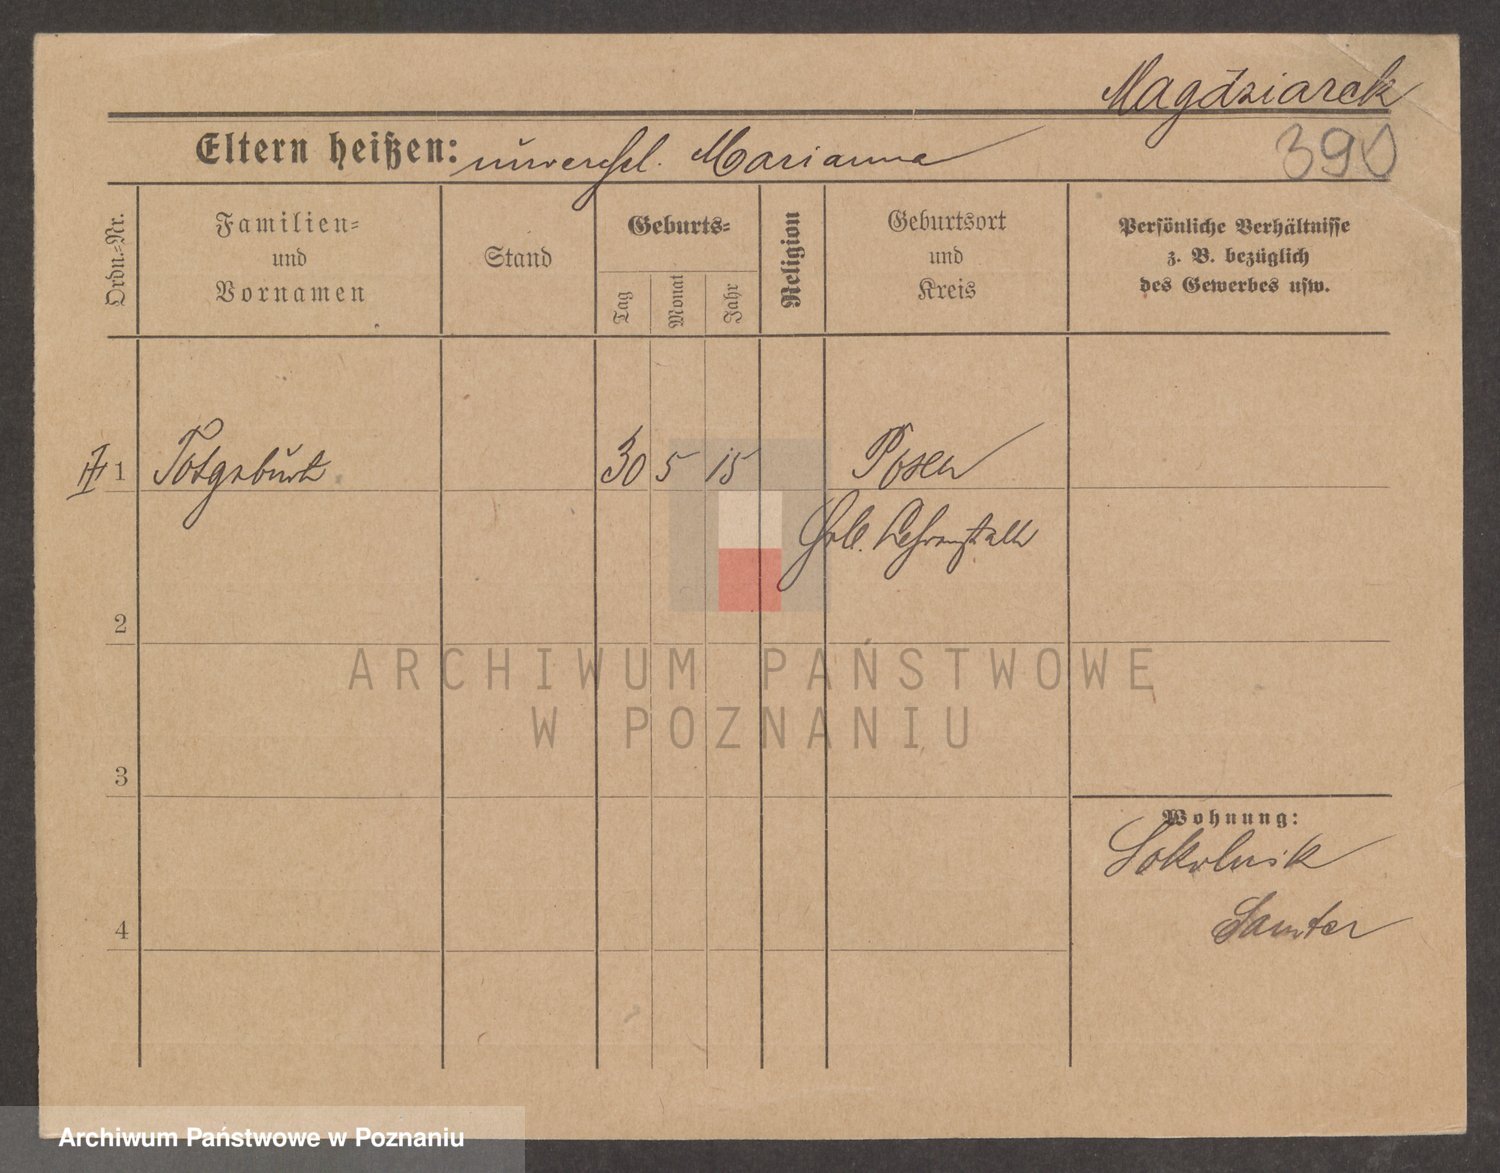 Magdziarek
390
Eltern heißen: unverehel. Marianna
Ordn.=Nr.
Familien=
und
Vornamen
Stand
Geburts=
Tag
Monat
Jahr
Religion
Geburtsort
und
Kreis
Persönliche Verhältnisse
z. B. bezüglich
des Gewerbes usw.
1 Totgeburt 30 5 15 Posen
Heb. Lehranstalt
2
ARCHIWUM PAŃSTWOWE
W POZNANIU
3
Wohnung:
Sokolnik
Samter
4
Archiwum Państwowe w Poznaniu